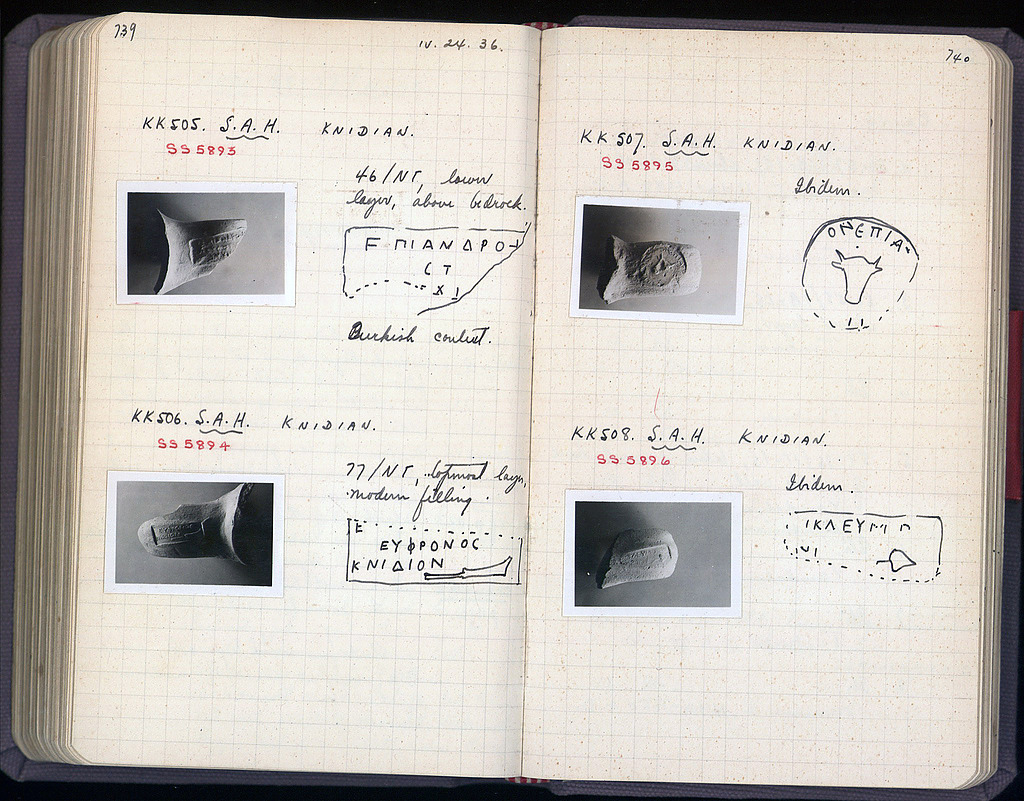 739
IV. 24. 36.
KK505. S.A.H. KNIDIAN.
SS 5893
46/ΝΓ, lower
layer, above bedrock.
ΕΠΙΑΝΔΡΟ
CT
XI
KK506. S.A.H. KNIDIAN.
SS 5894
77/ΝΓ, topmost layer,
modern filling.
Ε
ΕΥΦΡΟΝΟC
ΚΝΙΔΙΟΝ
740
KK507. S.A.H. KNIDIAN.
SS 5895
Ibidem.
ΟΝΕΠΙΑ
KK508. S.A.H. KNIDIAN.
SS 5896
Ibidem.
ΙΚΛΕΥΠΠ